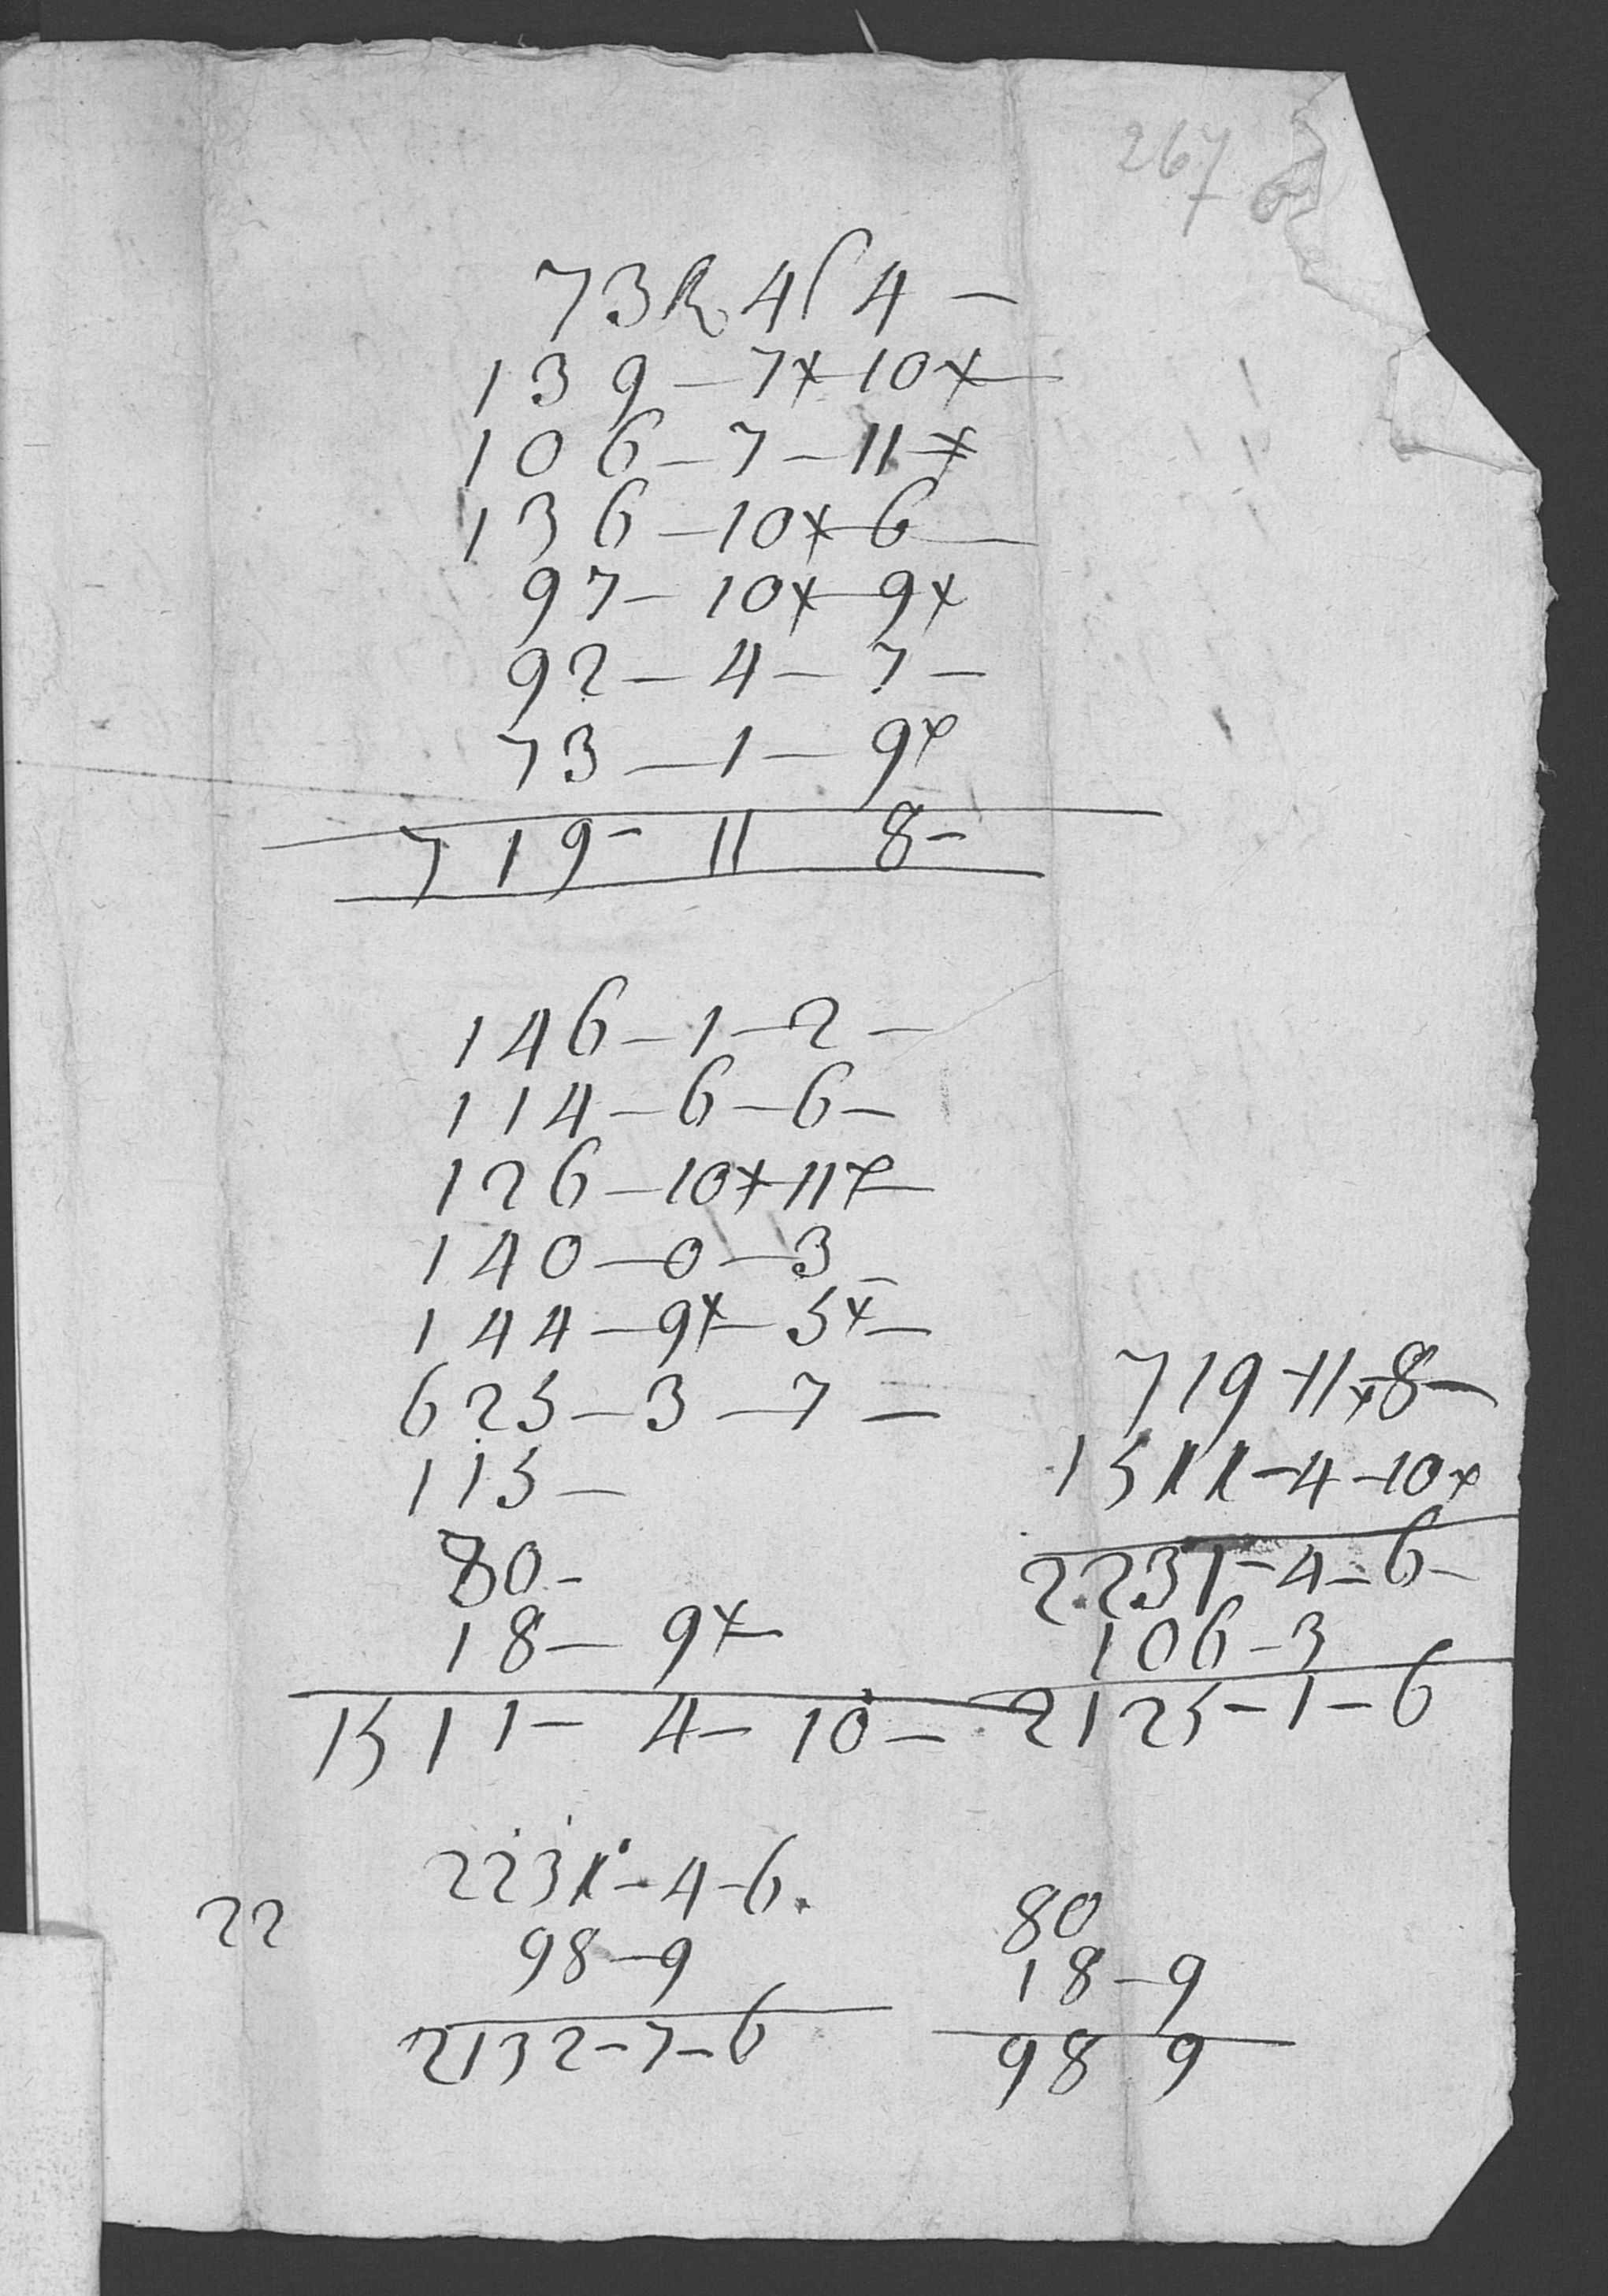 267
73 R 4 ſ 4 –
139 – 7x 10x
106 – 7 – 11x
136 – 10x 6
97 – 10x 9x
92 – 4 – 7 –
73 – 1 – 9x
719 – 11 8 –
146 – 1 – 2 –
114 – 6 – 6 –
126 – 10x 11x
140 – 0 – 3 –
144 – 9x – 5x –
625 – 3 – 7 –
115 –
80 –
18 – 9x
1511 – 4 – 10 –
719 – 11x 8 –
1511 – 4 – 10x
2231 – 4 – 6 –
106 – 3
2125 – 1 – 6
22
2231 – 4 – 6.
98 – 9
2132 – 7 – 6
80
18 – 9
98 9